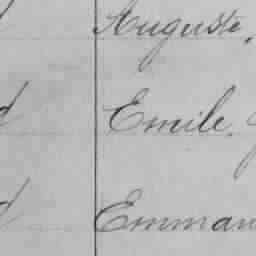 Auguste,
Emile,
Emman